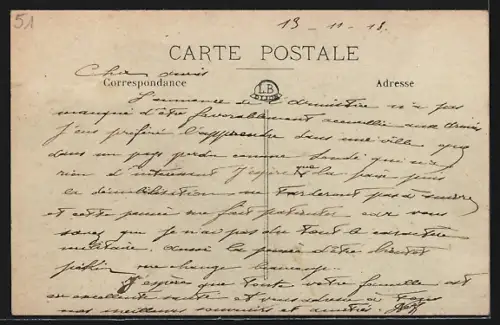 51
13 - 11 - 18.
CARTE POSTALE
Cher amis
Correspondance
LB
Adresse
L'annonce de l'armistice n'a pas
manqué d'être favorablement accueillie aux armées
J'eus préféré l'apprendre dans une ville que
dans un pays perdu comme qui n'a
rien d'intéressant J'espère que la paix puis
la démobilisation ne tarderont pas à suivre
et cette pensée me fait patienter car vous
savez que je n'ai pas du tout le caractère
militaire. Aussi la pensée d'être bientôt
me change beaucoup.
J'espère que toute votre famille est
en excellente santé et vous adresse à tous
mes meilleurs souvenirs et amitiés.